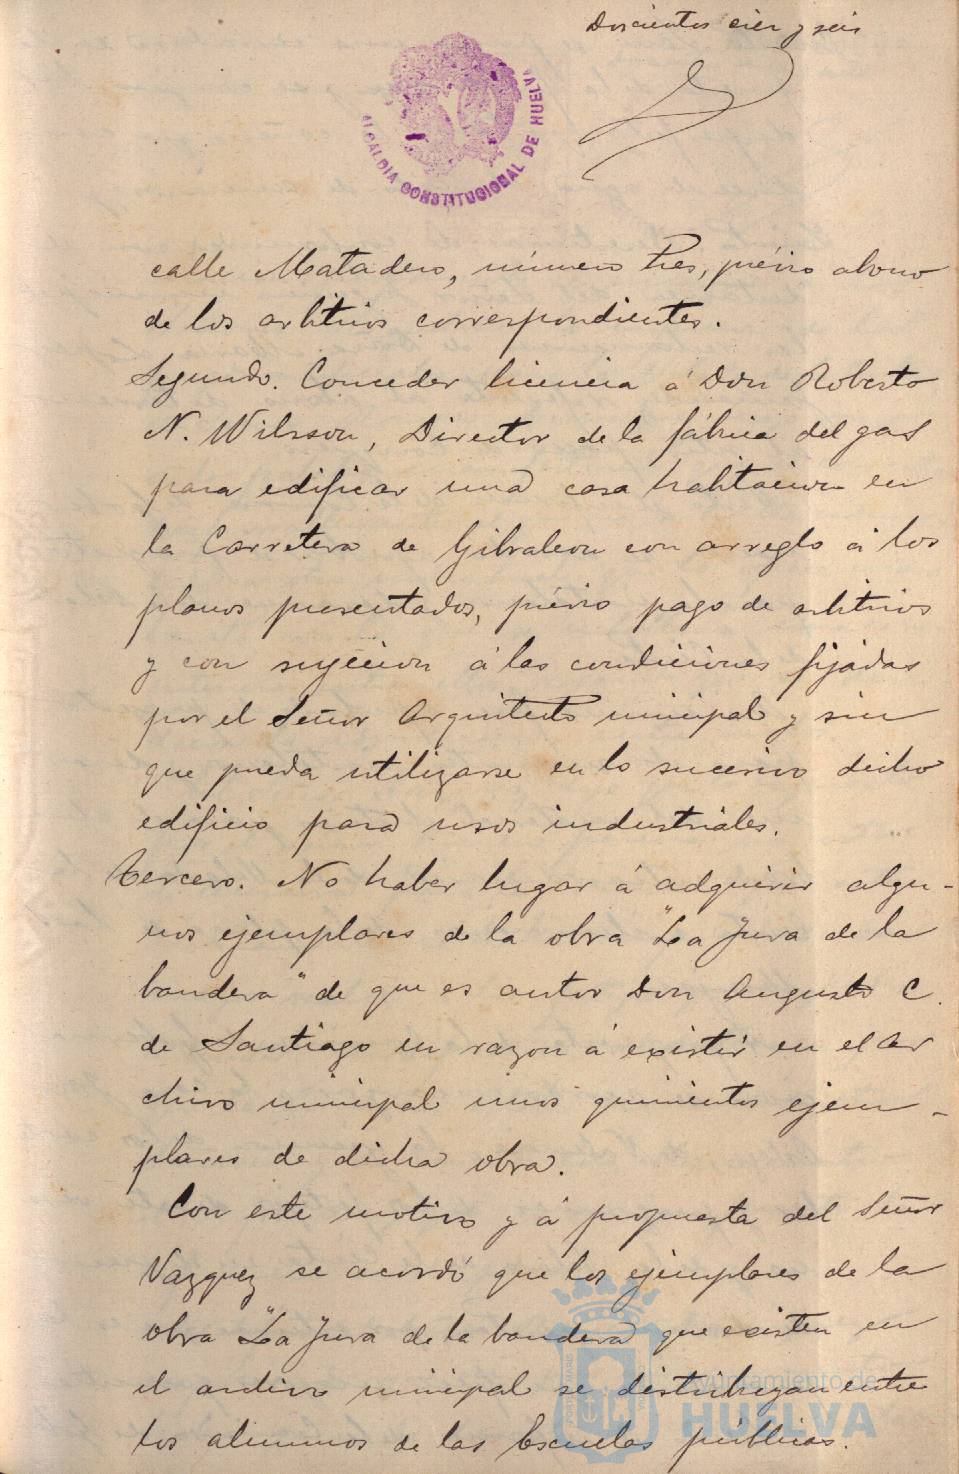 Doscientos diez y seis
ALCALDIA CONSTITUCIONAL DE HUELVA
calle Matadero, número tres, prévio abono
de los arbitrios correspondientes.
Segundo. Conceder licencia á Don Roberto
N. Wilsson, Director de la fábrica del gas
para edificar una casa habitacion en
la Carretera de Gibraleon con arreglo á los
planos presentados, prévio pago de arbitrios
y con sujecion á las condiciones fijadas
por el Señor Arquitecto municipal y sin
que pueda utilizarse en lo sucesivo dicho
edificio para usos industriales.
Tercero. No haber lugar á adquirir algu-
nos ejemplares de la obra "La Jura de la
bandera" de que es autor Don Augusto C.
de Santiago en razon á existir en el Ar
chivo municipal unos quinientos ejem-
plares de dicha obra.
Con este motivo y á propuesta del Señor
Vazquez se acordó que los ejemplares de la
obra "La Jura de la bandera que existen en
el archivo municipal se distribuyan entre
los alumnos de las Escuelas públicas.
Ayuntamiento de
HUELVA